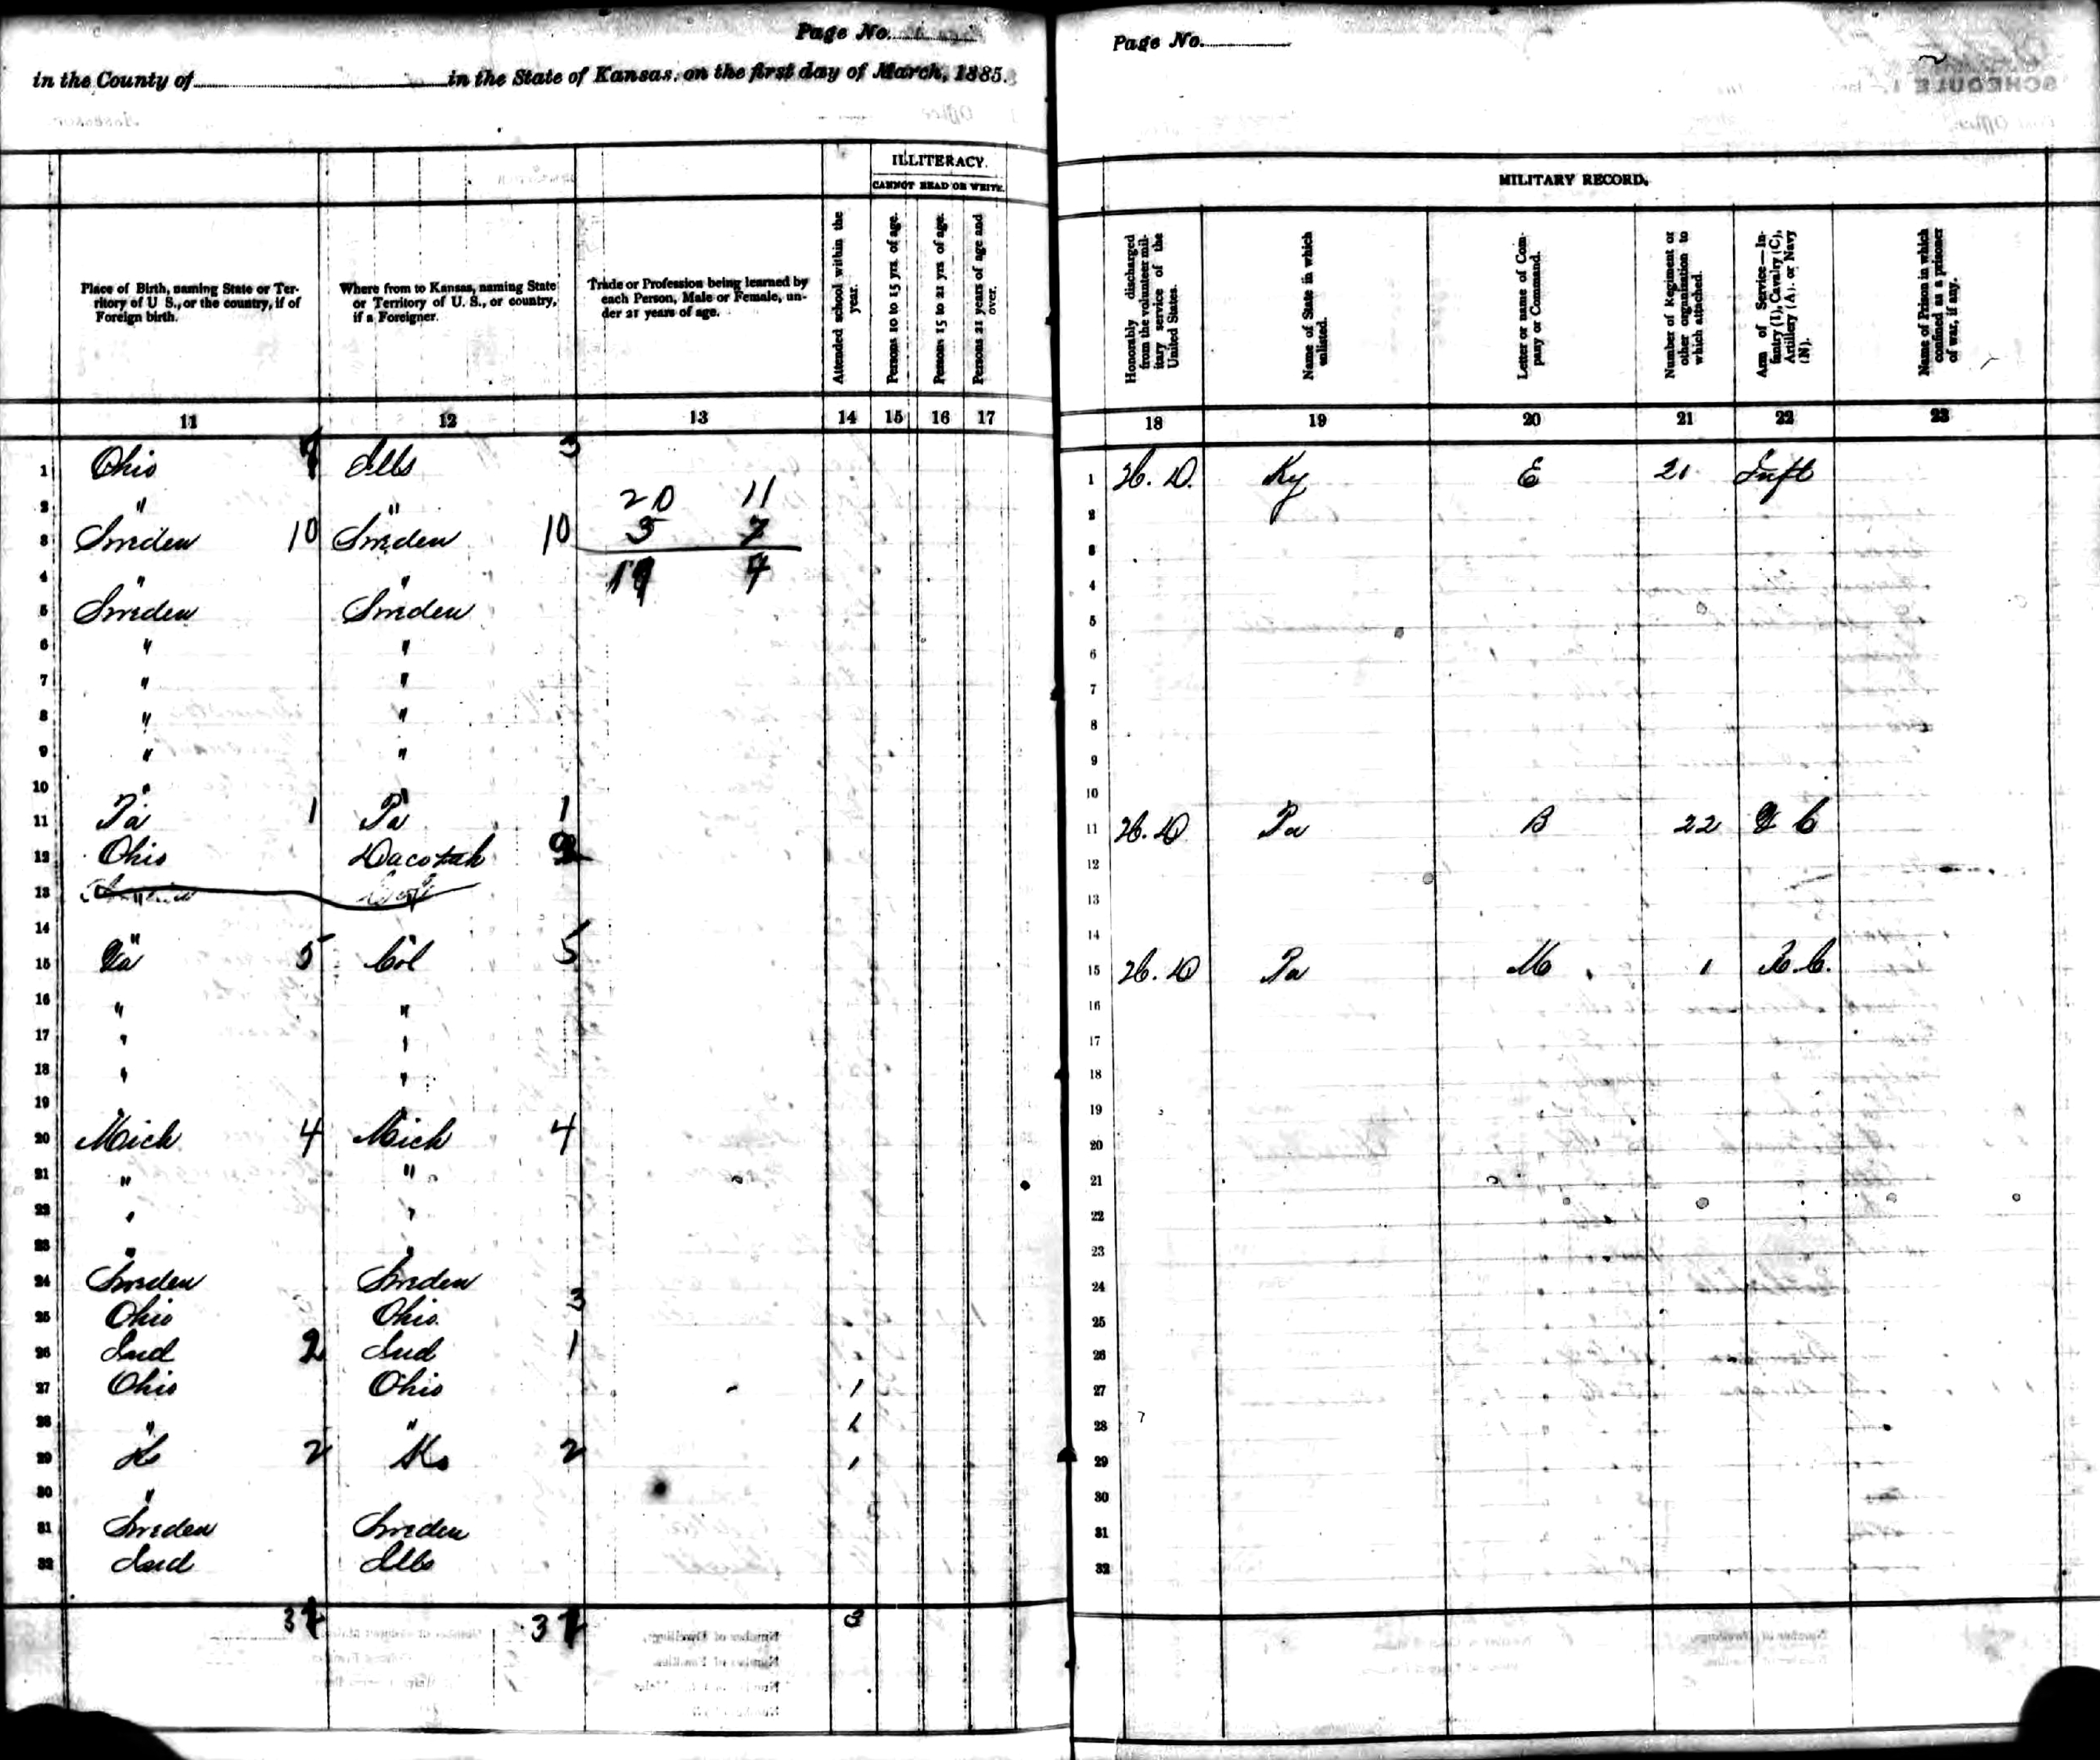 Page No.
in the County of in the State of Kansas, on the first day of March, 1885.
ILLITERACY.
CANNOT READ OR WRITE.
Place of Birth, naming State or Ter-
ritory of U S., or the country, if of
Foreign birth.
Where from to Kansas, naming State
or Territory of U. S., or country,
if a Foreigner.
Trade or Profession being learned by
each Person, Male or Female, un-
der 21 years of age.
Attended school within the
year.
Persons 10 to 15 yrs. of age.
Persons 15 to 21 yrs of age.
Persons 21 years of age and
over.
11 12 13 14 15 16 17
1 Ohio Ills 3
2 " " 20 11
3 Sweden 10 Sweden 10 3 7
4 " "
5 Sweden Sweden
6 " "
7 " "
8 " "
9 " "
10 " "
11 Pa 1 Pa 1
12 Ohio Dacotah
13
14 " "
15 Pa 5 Col 5
16 " "
17 " "
18 " "
19 " "
20 Mich 4 Mich 4
21 " "
22 " "
23 " "
24 Sweden Sweden
25 Ohio Ohio 3
26 Ind 2 Ind 1
27 Ohio Ohio 1
28 " " 1
29 Ks 2 Ks 2 1
30 "
31 Sweden Sweden
32 Ind Ills
3
Page No.
SCHEDULE 1.
MILITARY RECORD.
Honorably discharged
from the volunteer mil-
itary service of the
United States.
Name of State in which
enlisted.
Letter or name of Com-
pany or Command.
Number of Regiment or
other organization to
which attached.
Arm of Service—In-
fantry (I), Cavalry (C),
Artillery (A), or Navy
(N).
Name of Prison in which
confined as a prisoner
of war, if any.
18 19 20 21 22 23
1 H. D. Ky E 21 Inft
2
3
4
5
6
7
8
9
10
11 H. D Pa B 22 V C
12
13
14
15 H. D Pa M 1 R. C.
16
17
18
19
20
21
22
23
24
25
26
27
28
29
30
31
32